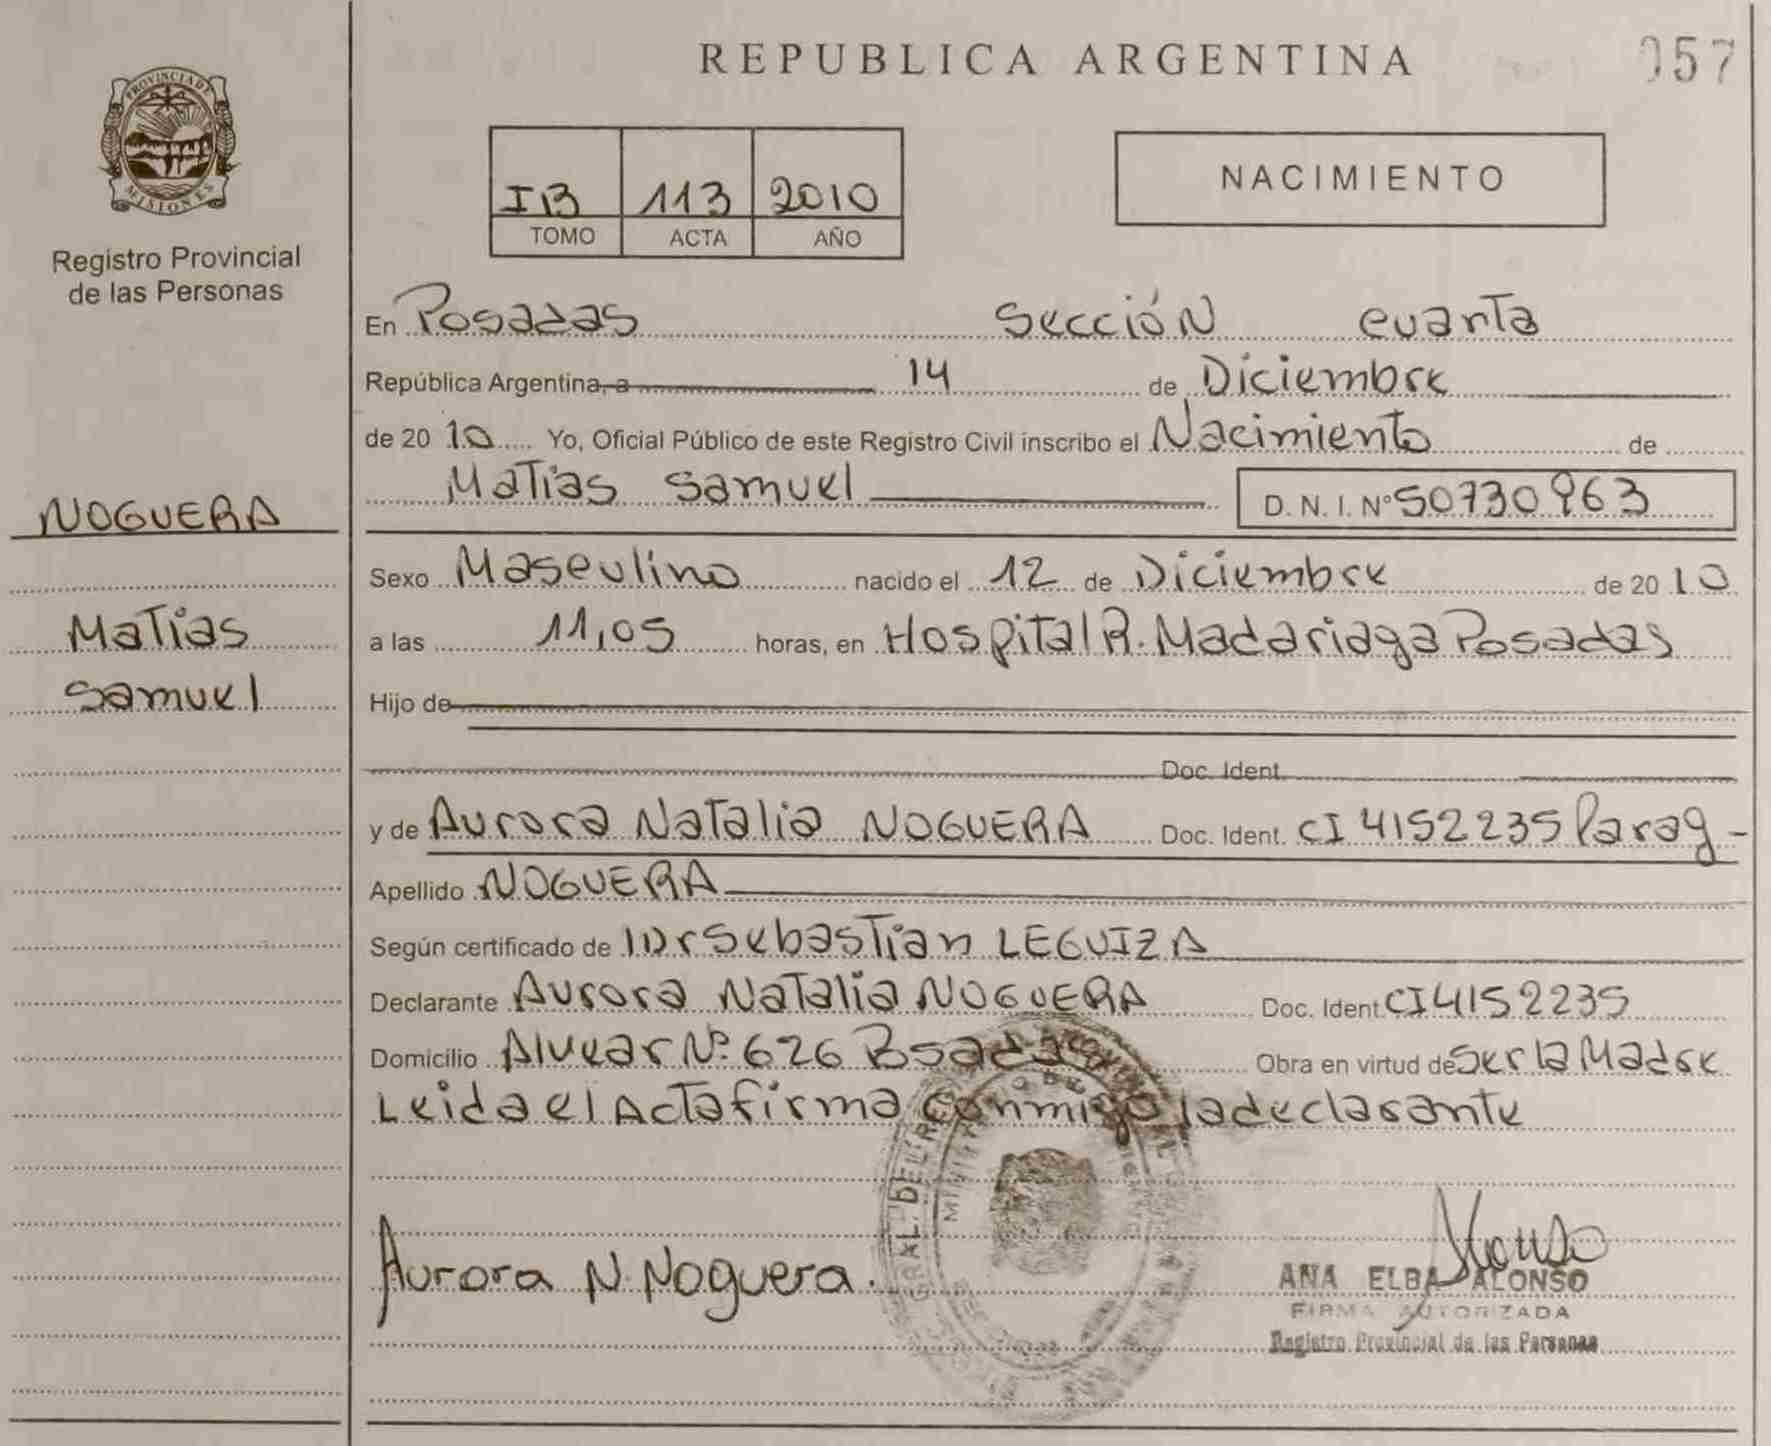 REPUBLICA ARGENTINA
057
PROVINCIA DE MISIONES
Registro Provincial
de las Personas
I B 113 2010
TOMO ACTA AÑO
NACIMIENTO
En Posadas Sección cuarta
República Argentina, a 14 de Diciembre
de 20 10 Yo, Oficial Público de este Registro Civil inscribo el Nacimiento de
Matias Samuel
D. N. I. Nº 50730963
NOGUERA
Matias
Samuel
Sexo Masculino nacido el 12 de Diciembre de 20 10
a las 11,05 horas, en Hospital R. Madariaga Posadas
Hijo de
Doc. Ident.
y de Aurora Natalia NOGUERA Doc. Ident. CI 4152235 Parag-
Apellido NOGUERA
Según certificado de Dr Sebastian LEGUIZA
Declarante Aurora Natalia NOGUERA Doc. Ident. CI 4152235
Domicilio Alvear Nº 626 Obra en virtud de ser la Madre
Leida el Acta firma conmigo la declarante
Aurora N. Noguera.
ANA ELBA ALONSO
FIRMA AUTORIZADA
Registro Provincial de las Personas